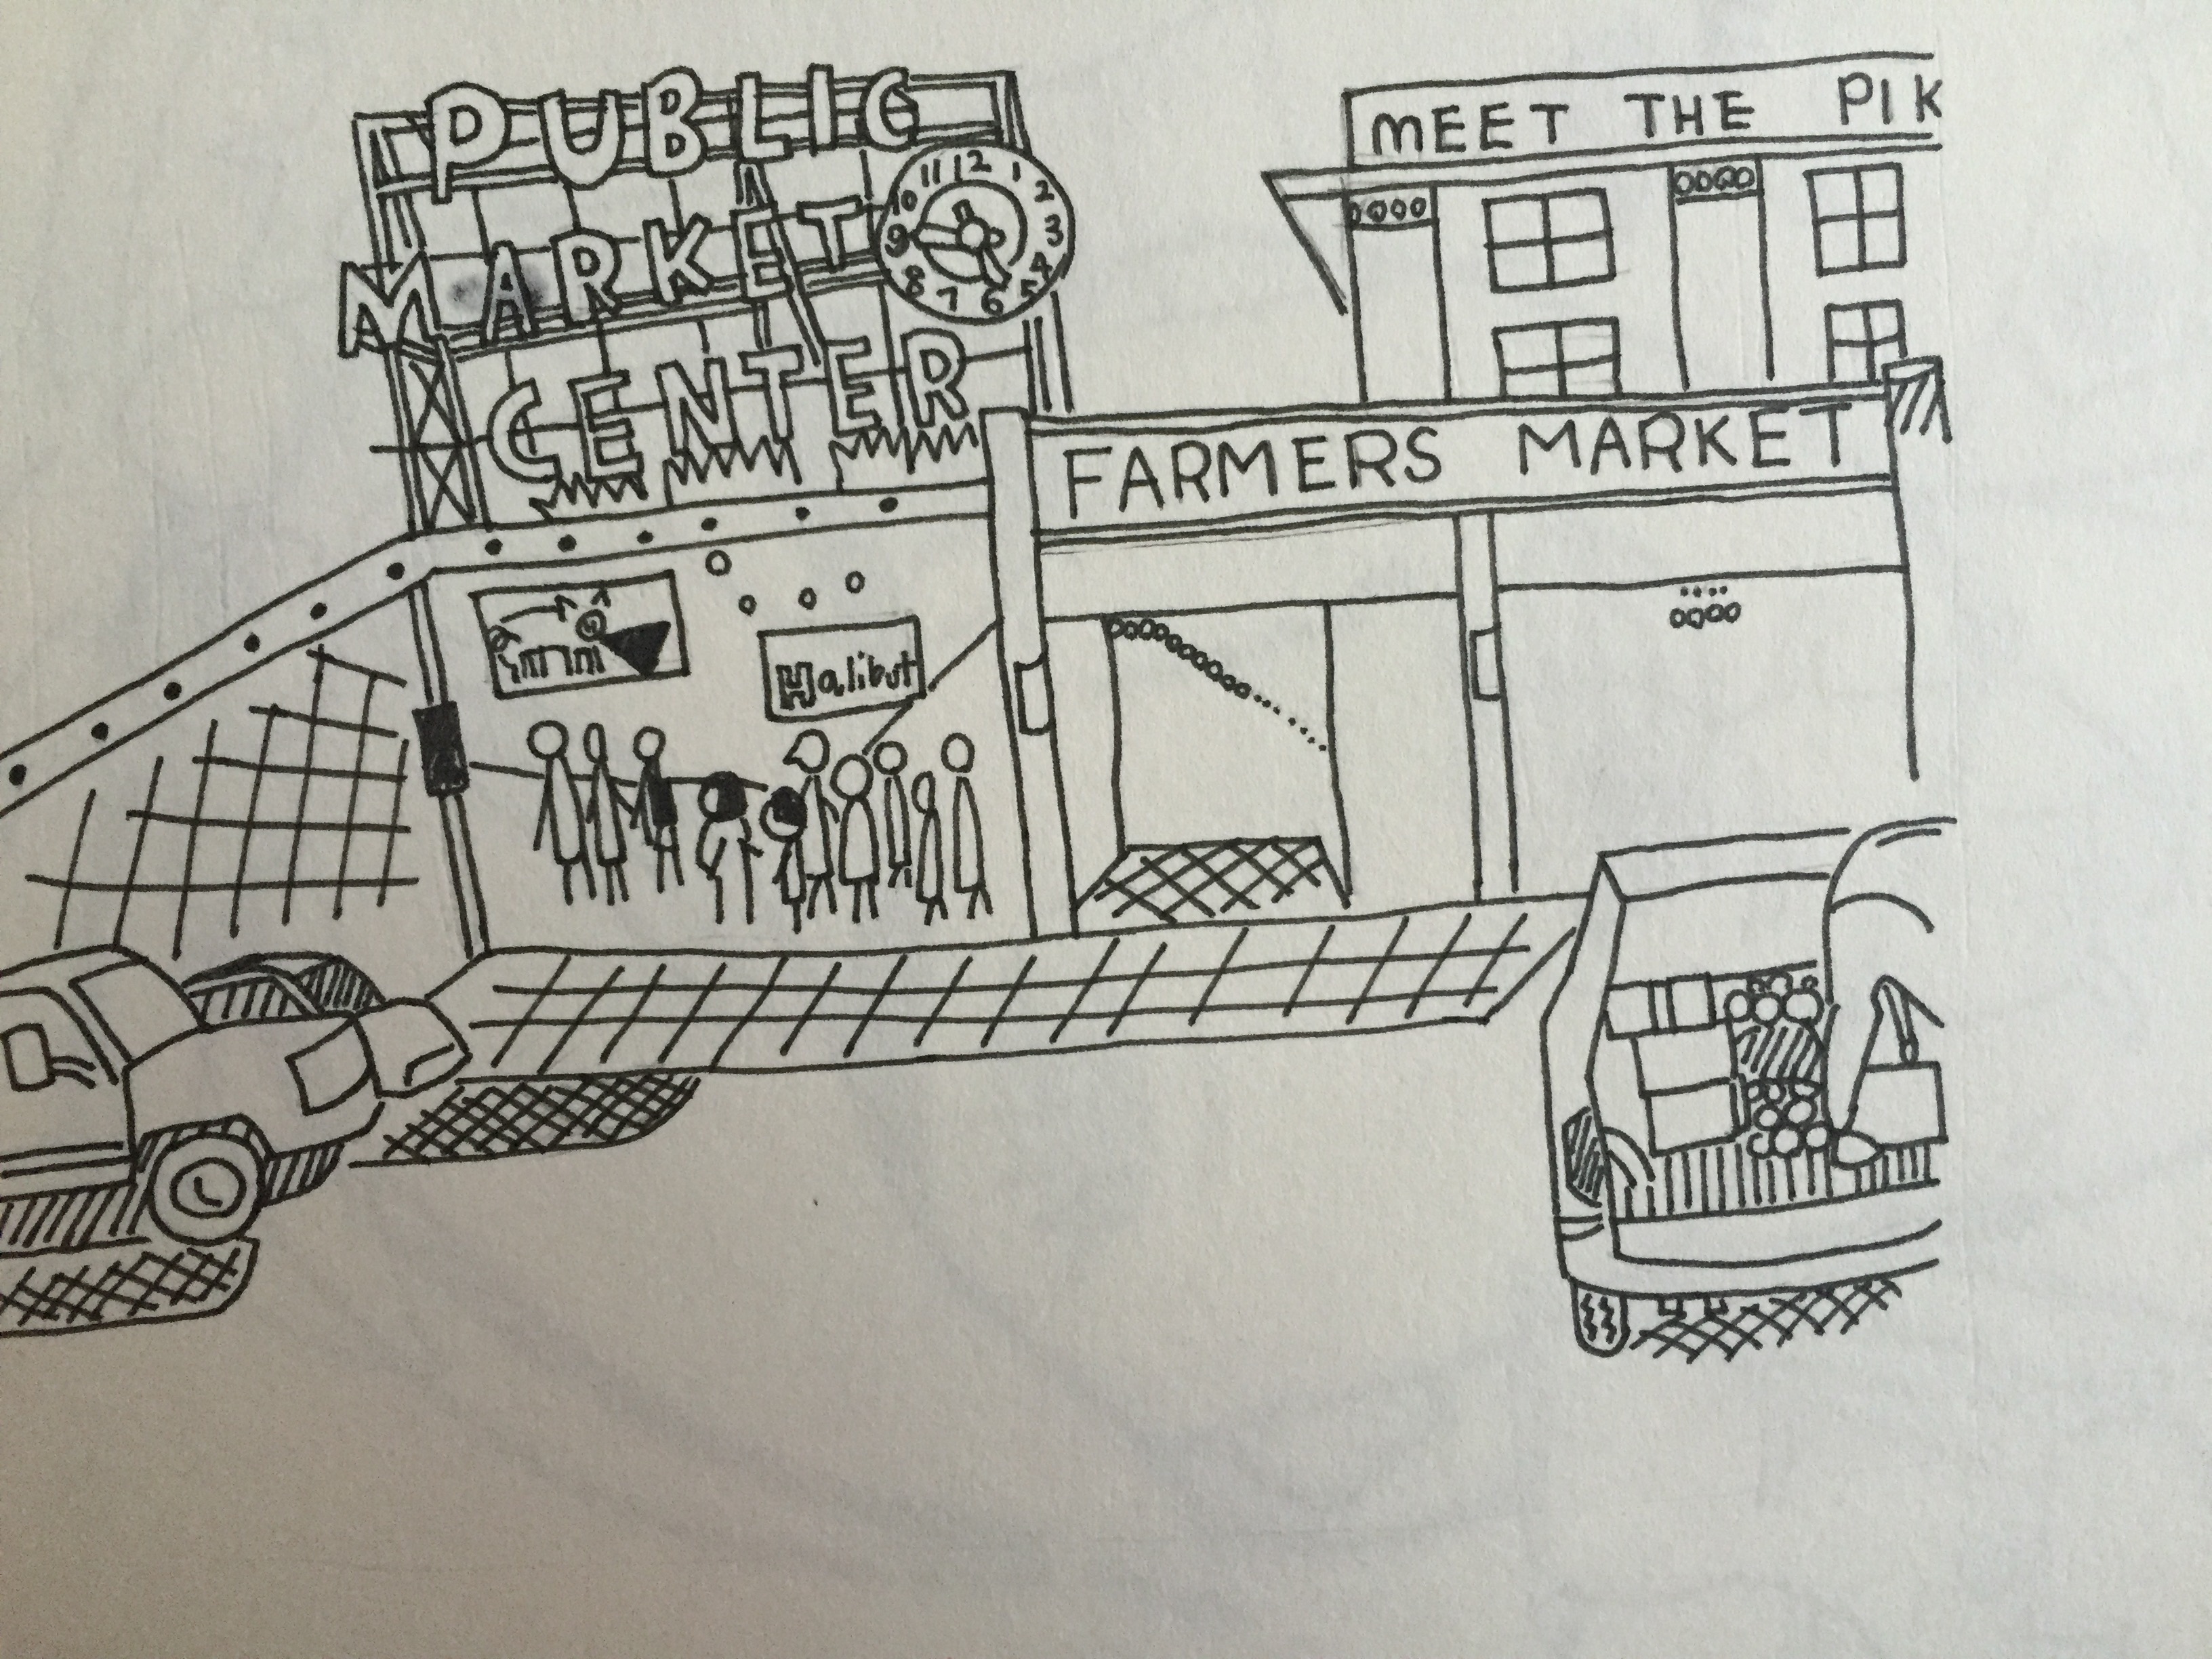 PUBLIC
MARKET
CENTER
11 12 1
10 2
9 3
8 4
7 6 5
MEET THE PIK
FARMERS MARKET
Halibut